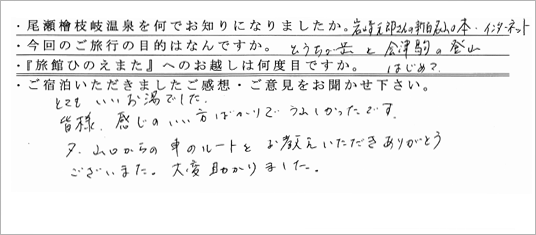 ・尾瀬檜枝岐温泉を何でお知りになりましたか。岩崎元郎さんの新百名山の本・インターネット
・今回のご旅行の目的はなんですか。 とうちが岳と会津駒の登山
・『旅館ひのえまた』へのお越しは何度目ですか。 はじめて
・ご宿泊いただきましたご感想・ご意見をお聞かせ下さい。
とてもいいお湯でした。
皆様、感じのいい方ばかりでうれしかったです。
夕、山口からの車のルートをお教えいただきありがとう
ございまた。大変助かりました。